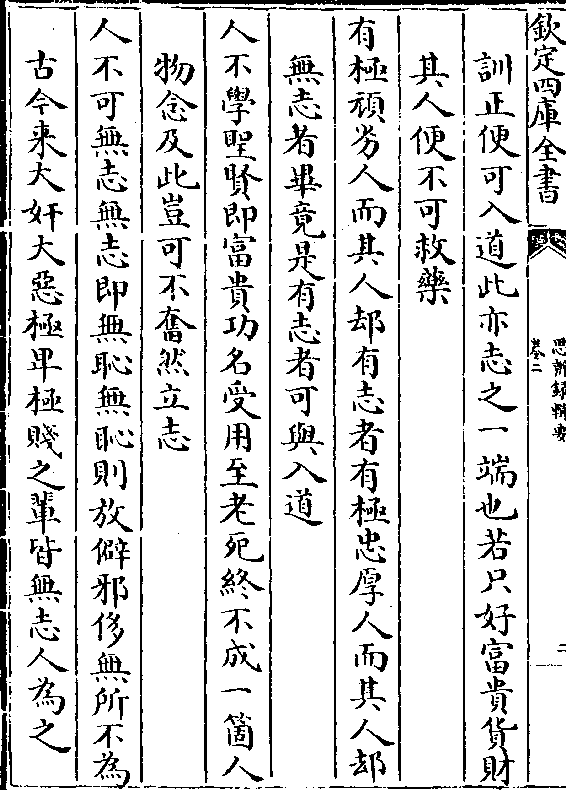 欽定四庫全書
思辨録輯要
卷二
二
訓正便可入道此亦志之一端也若只好富貴貨財
其人便不可救藥
有極頑劣人而其人却有志者有極忠厚人而其人却
無志者畢竟是有志者可與入道
人不學聖賢即富貴功名受用至老死終不成一箇人
物念及此豈可不奮然立志
人不可無志無志即無恥無恥則放僻邪侈無所不為
古今来大奸大惡極卑極賤之輩皆無志人為之